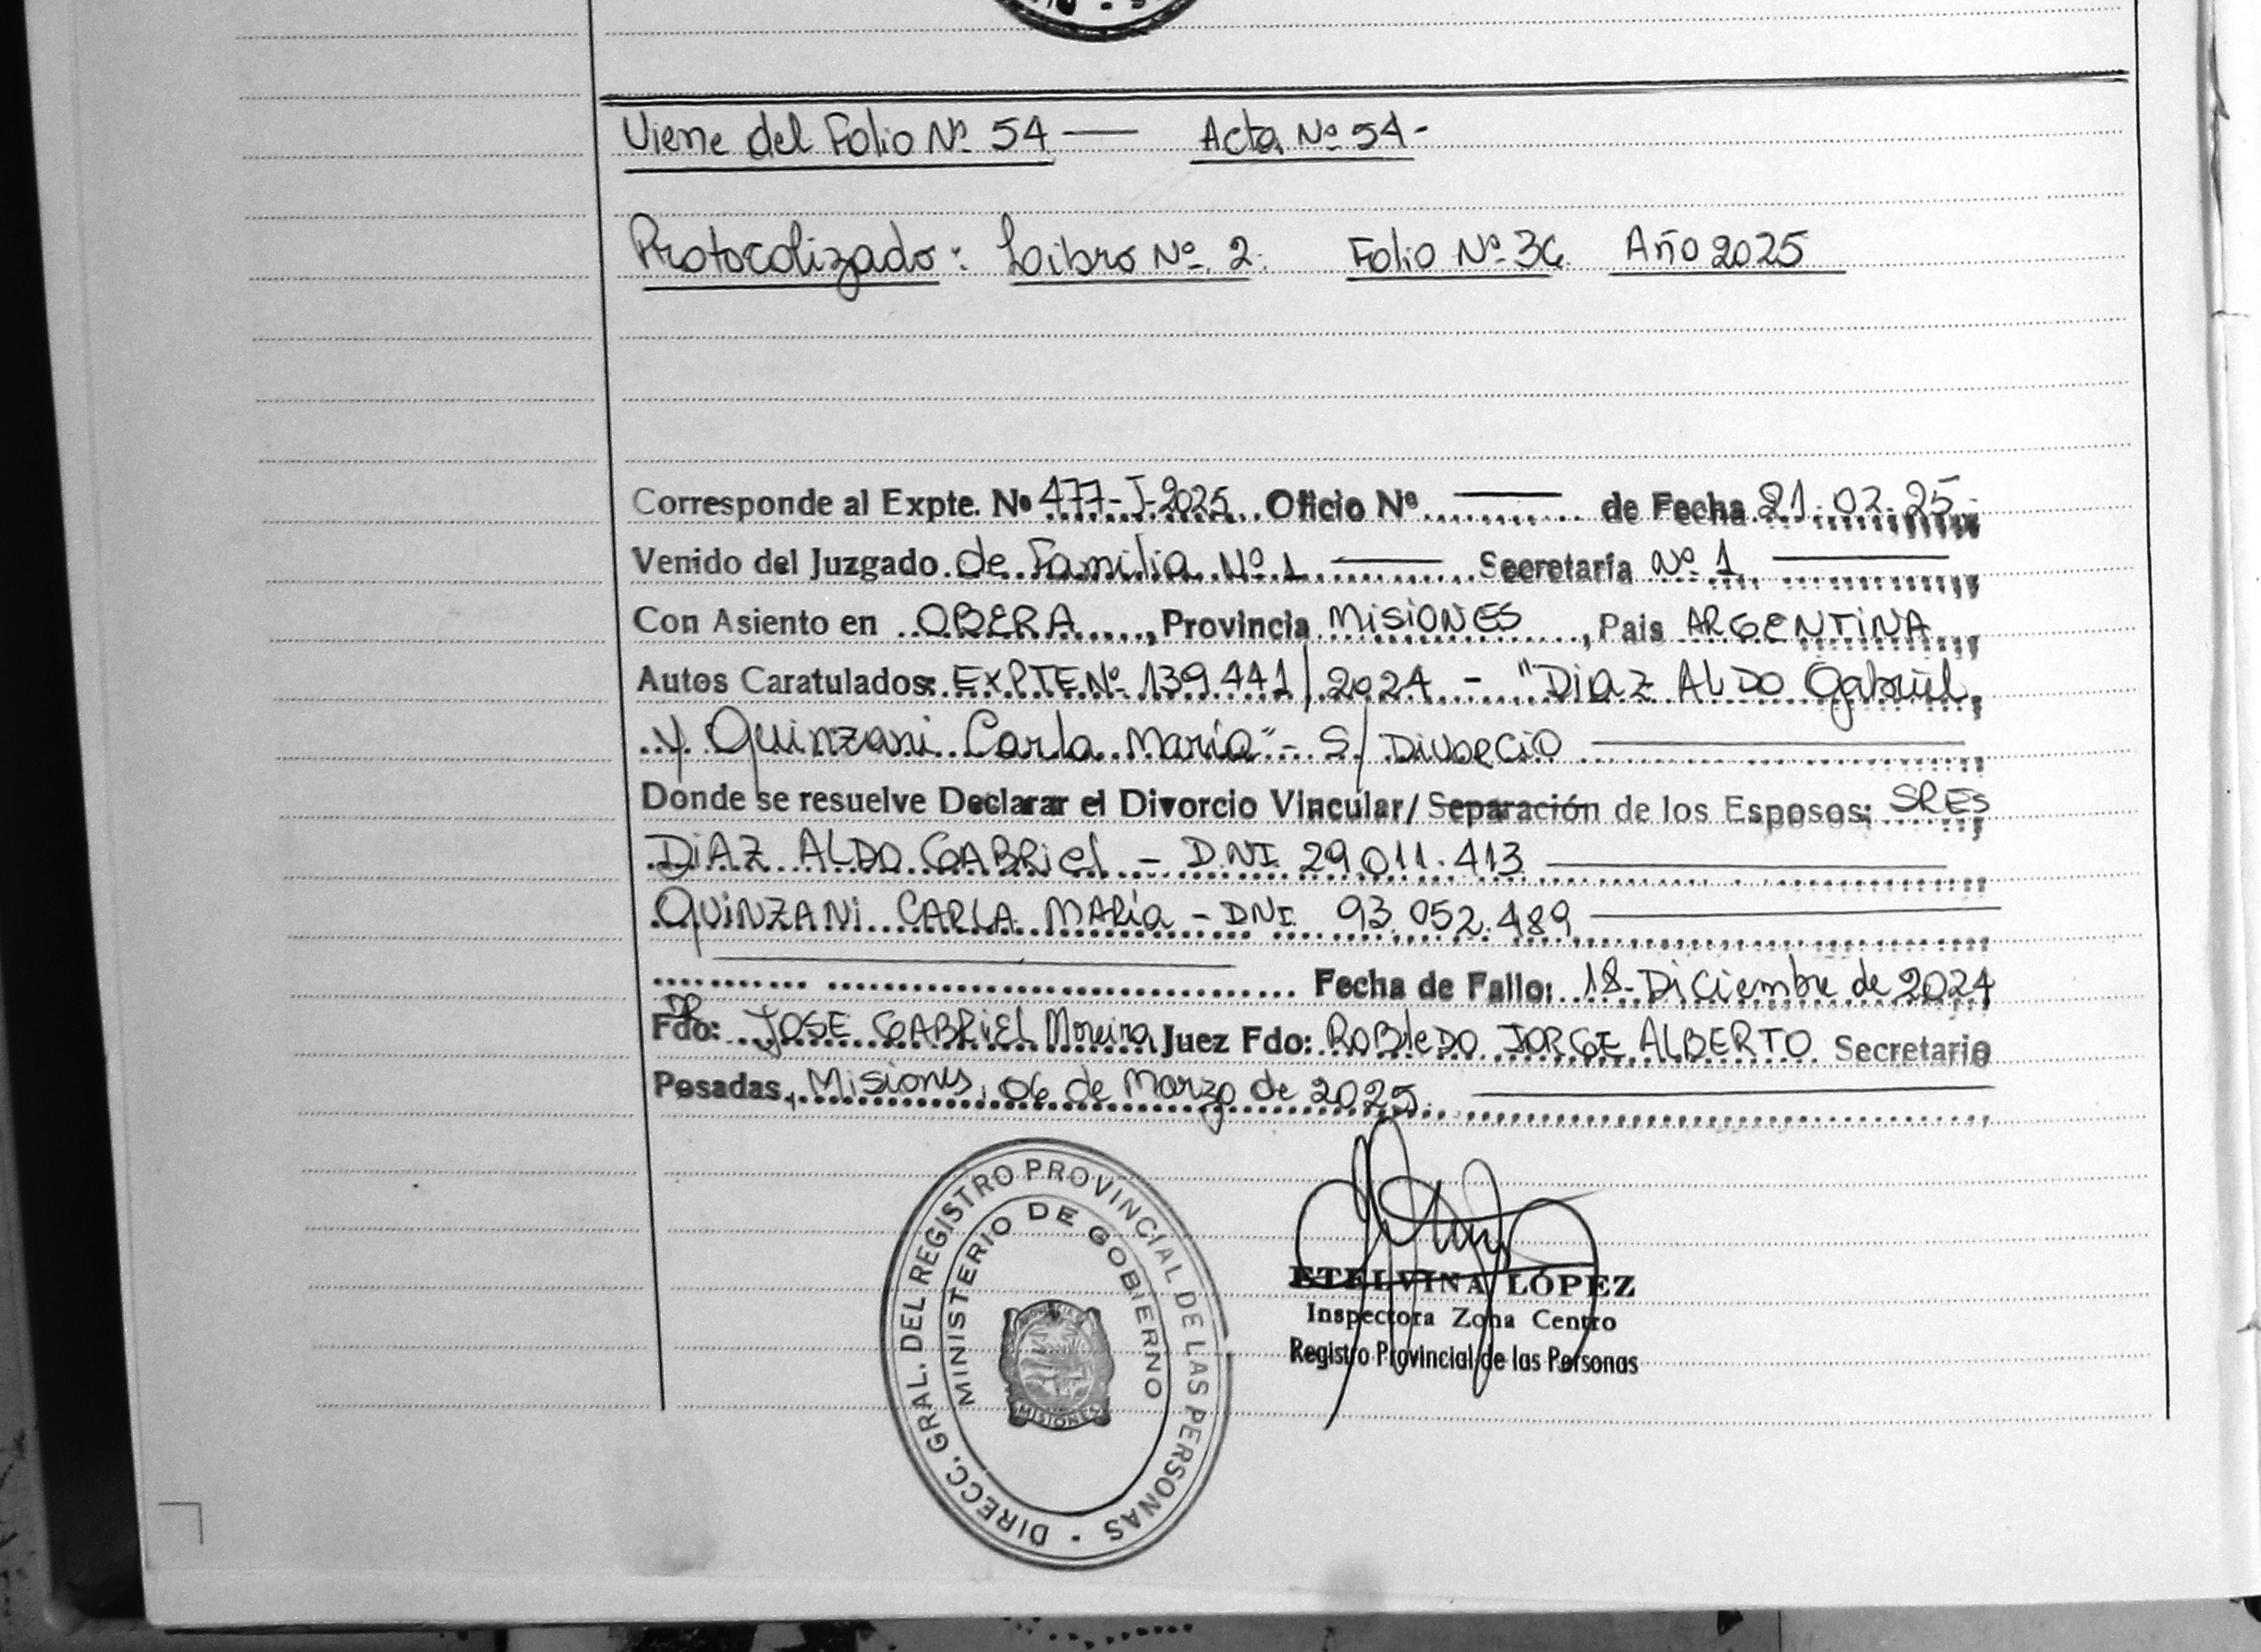 Viene del Folio Nº 54 — Acta Nº 54-
Protocolizado: Libro Nº 2. Folio Nº 36 Año 2025
Corresponde al Expte. Nº 477-J-2025 Oficio Nº —— de Fecha 21.02.25.
Venido del Juzgado de Familia Nº 1 —— Secretaría Nº 1 ——
Con Asiento en OBERA, Provincia MISIONES, Pais ARGENTINA
Autos Caratulados: EXPTE Nº 139.441/2024 - "DIAZ ALDO Gabriel
y Quinzani Carla Maria" - S/ DIVORCIO ——
Donde se resuelve Declarar el Divorcio Vincular/ Separación de los Esposos: SRES
DIAZ ALDO GABRIEL - DNI 29.011.413 ——
QUINZANI CARLA MARIA - DNI. 93.052.489 ——
—— Fecha de Fallo: 18-Diciembre de 2024
Fdo: DR JOSE GABRIEL Moreira Juez Fdo: ROBLEDO JORGE ALBERTO Secretario
Posadas, Misiones, 06 de Marzo de 2025. ——
DIRECC. GRAL. DEL REGISTRO PROVINCIAL DE LAS PERSONAS -
MINISTERIO DE GOBIERNO
MISIONES
ETELVINA LÓPEZ
Inspectora Zona Centro
Registro Provincial de las Personas